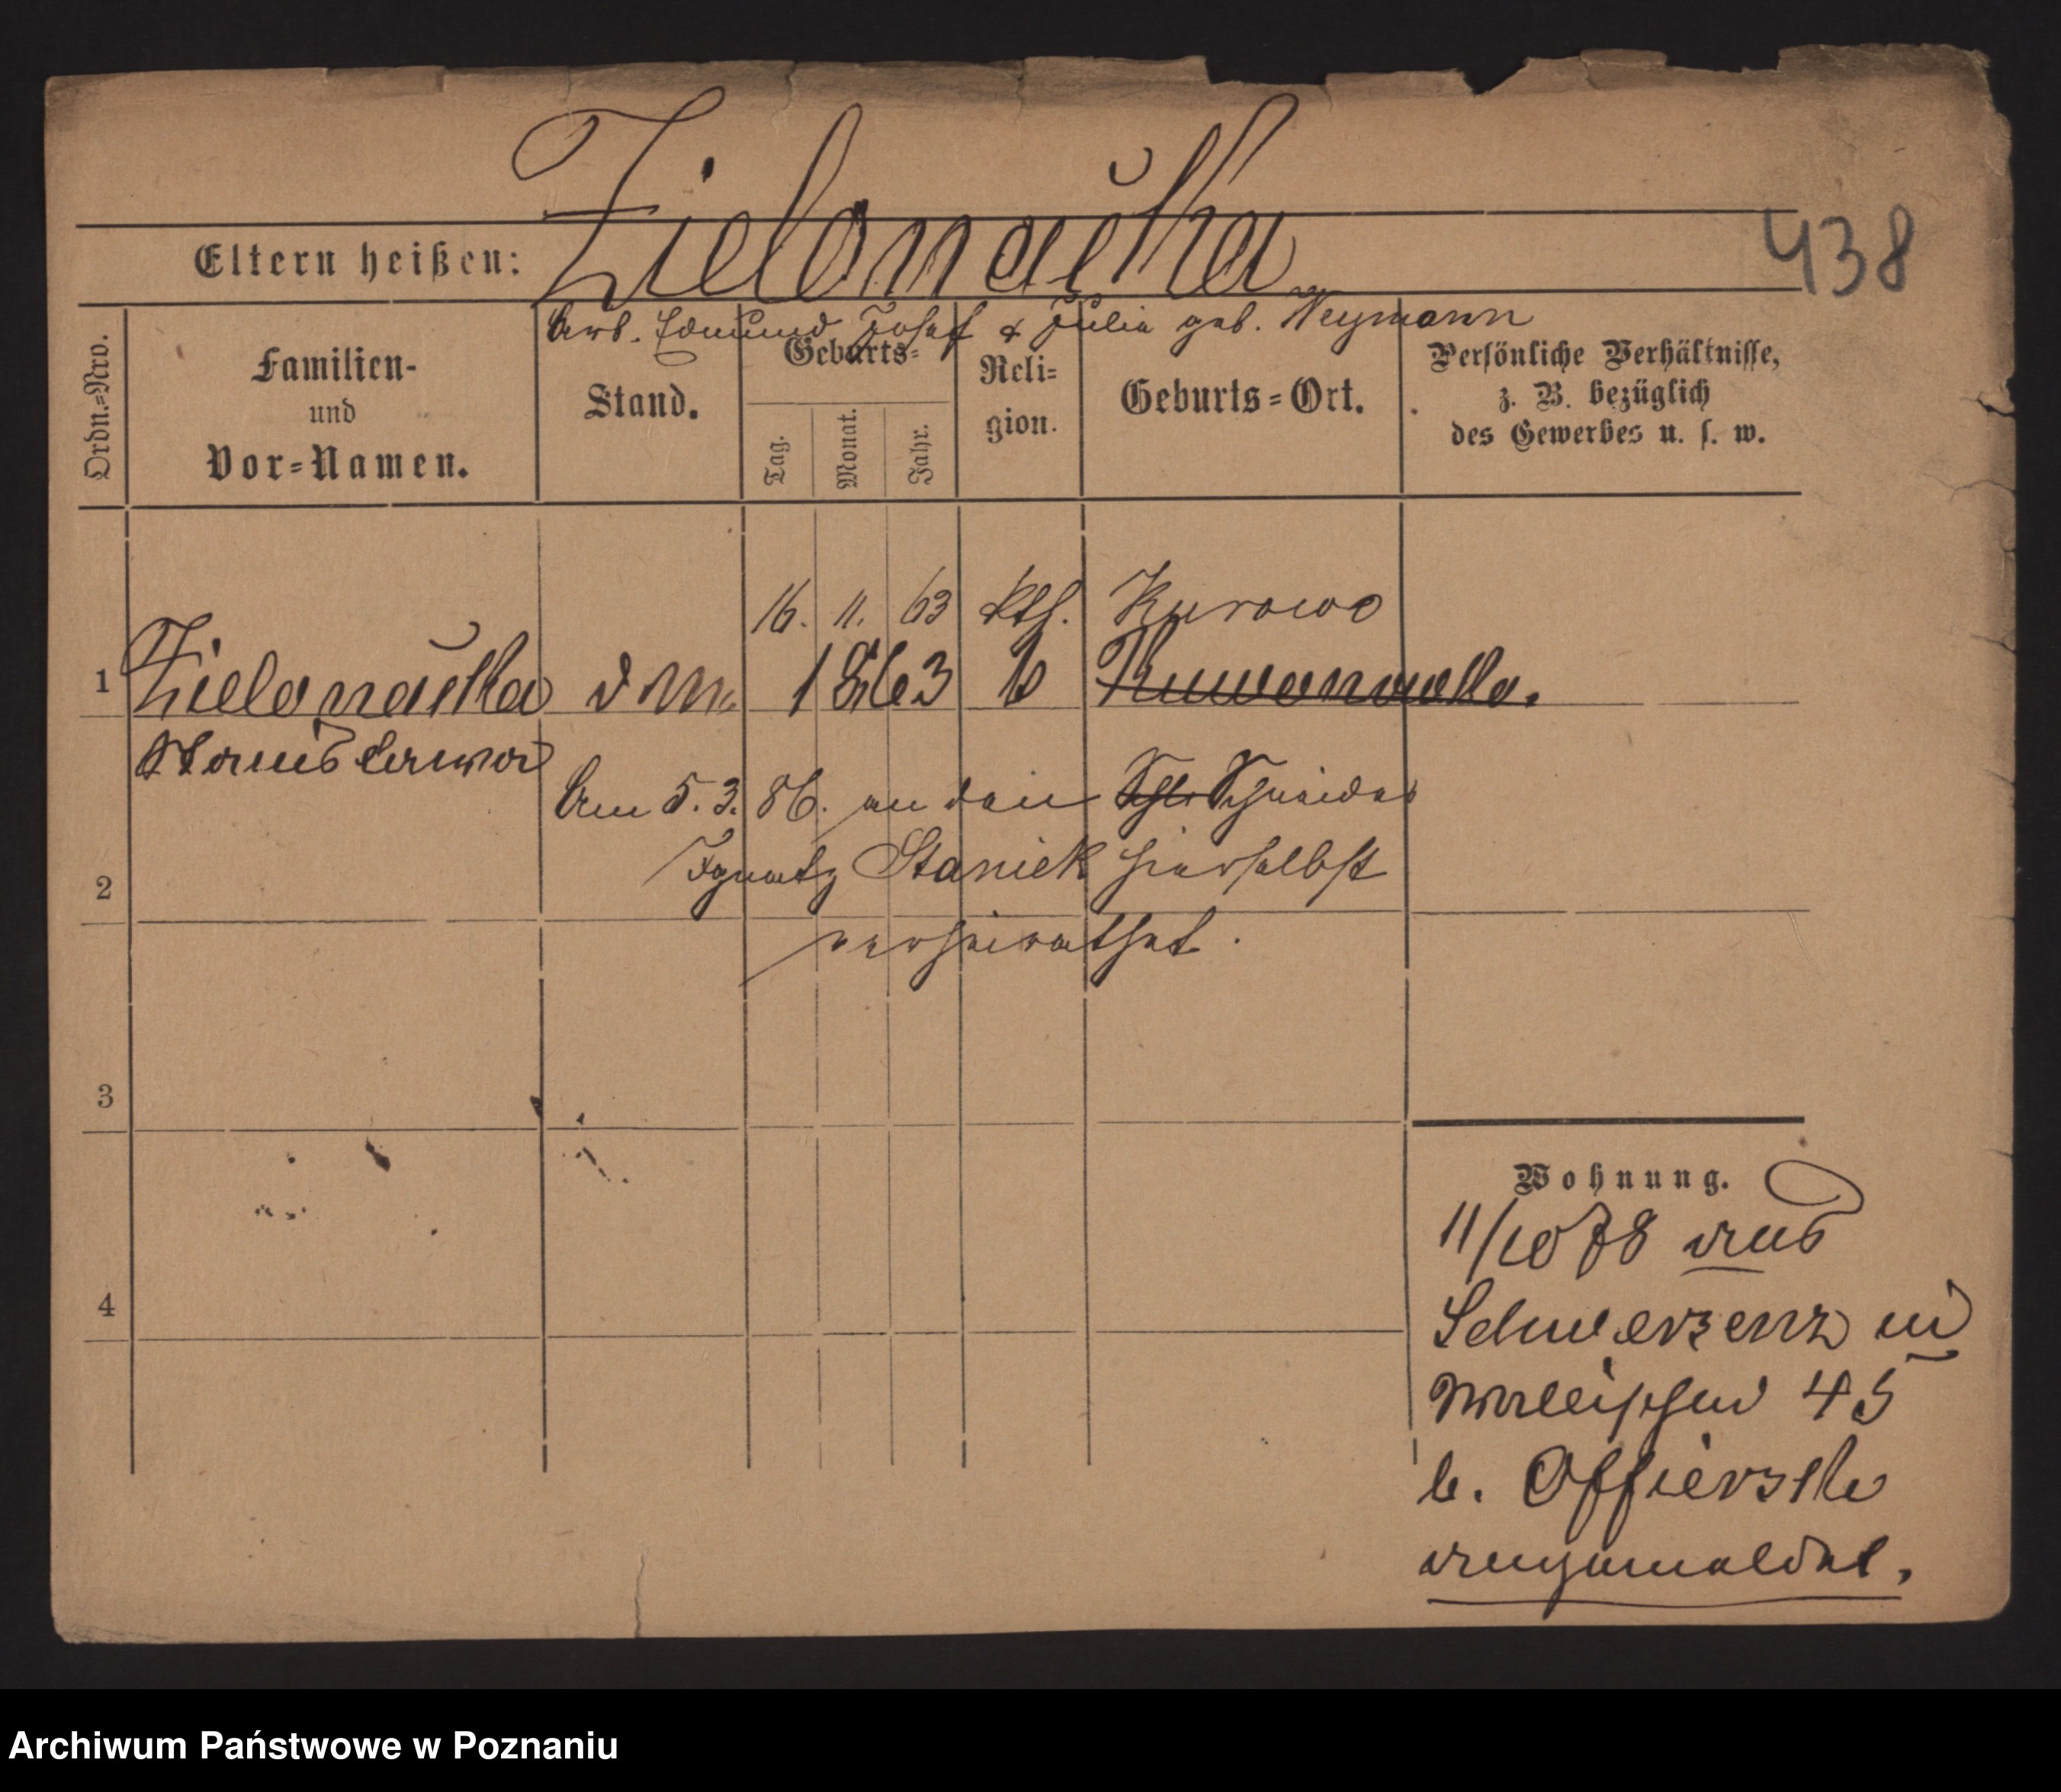 Zielonacka
438
Eltern heißen:
Arb. Edmund Josef & Julia geb. Neymann
Ordn.=Nro.
Familien-
und
Vor=Namen.
Stand.
Geburts=
Tag.
Monat.
Jahr.
Reli=
gion.
Geburts=Ort.
Persönliche Verhältnisse,
z. B. bezüglich
des Gewerbes u. s. w.
16. 11. 63 kth. Kurowo
1 Zielonacka 1863
Stanislawa
Am 5. 3. 86. an den Schneider
2 Ignatz Staniek hierselbst
verheirathet.
3
4
Wohnung.
11/10 78 aus
Schwersenz in
Wallischei 45
b. Offierska
angemeldet.
Archiwum Państwowe w Poznaniu